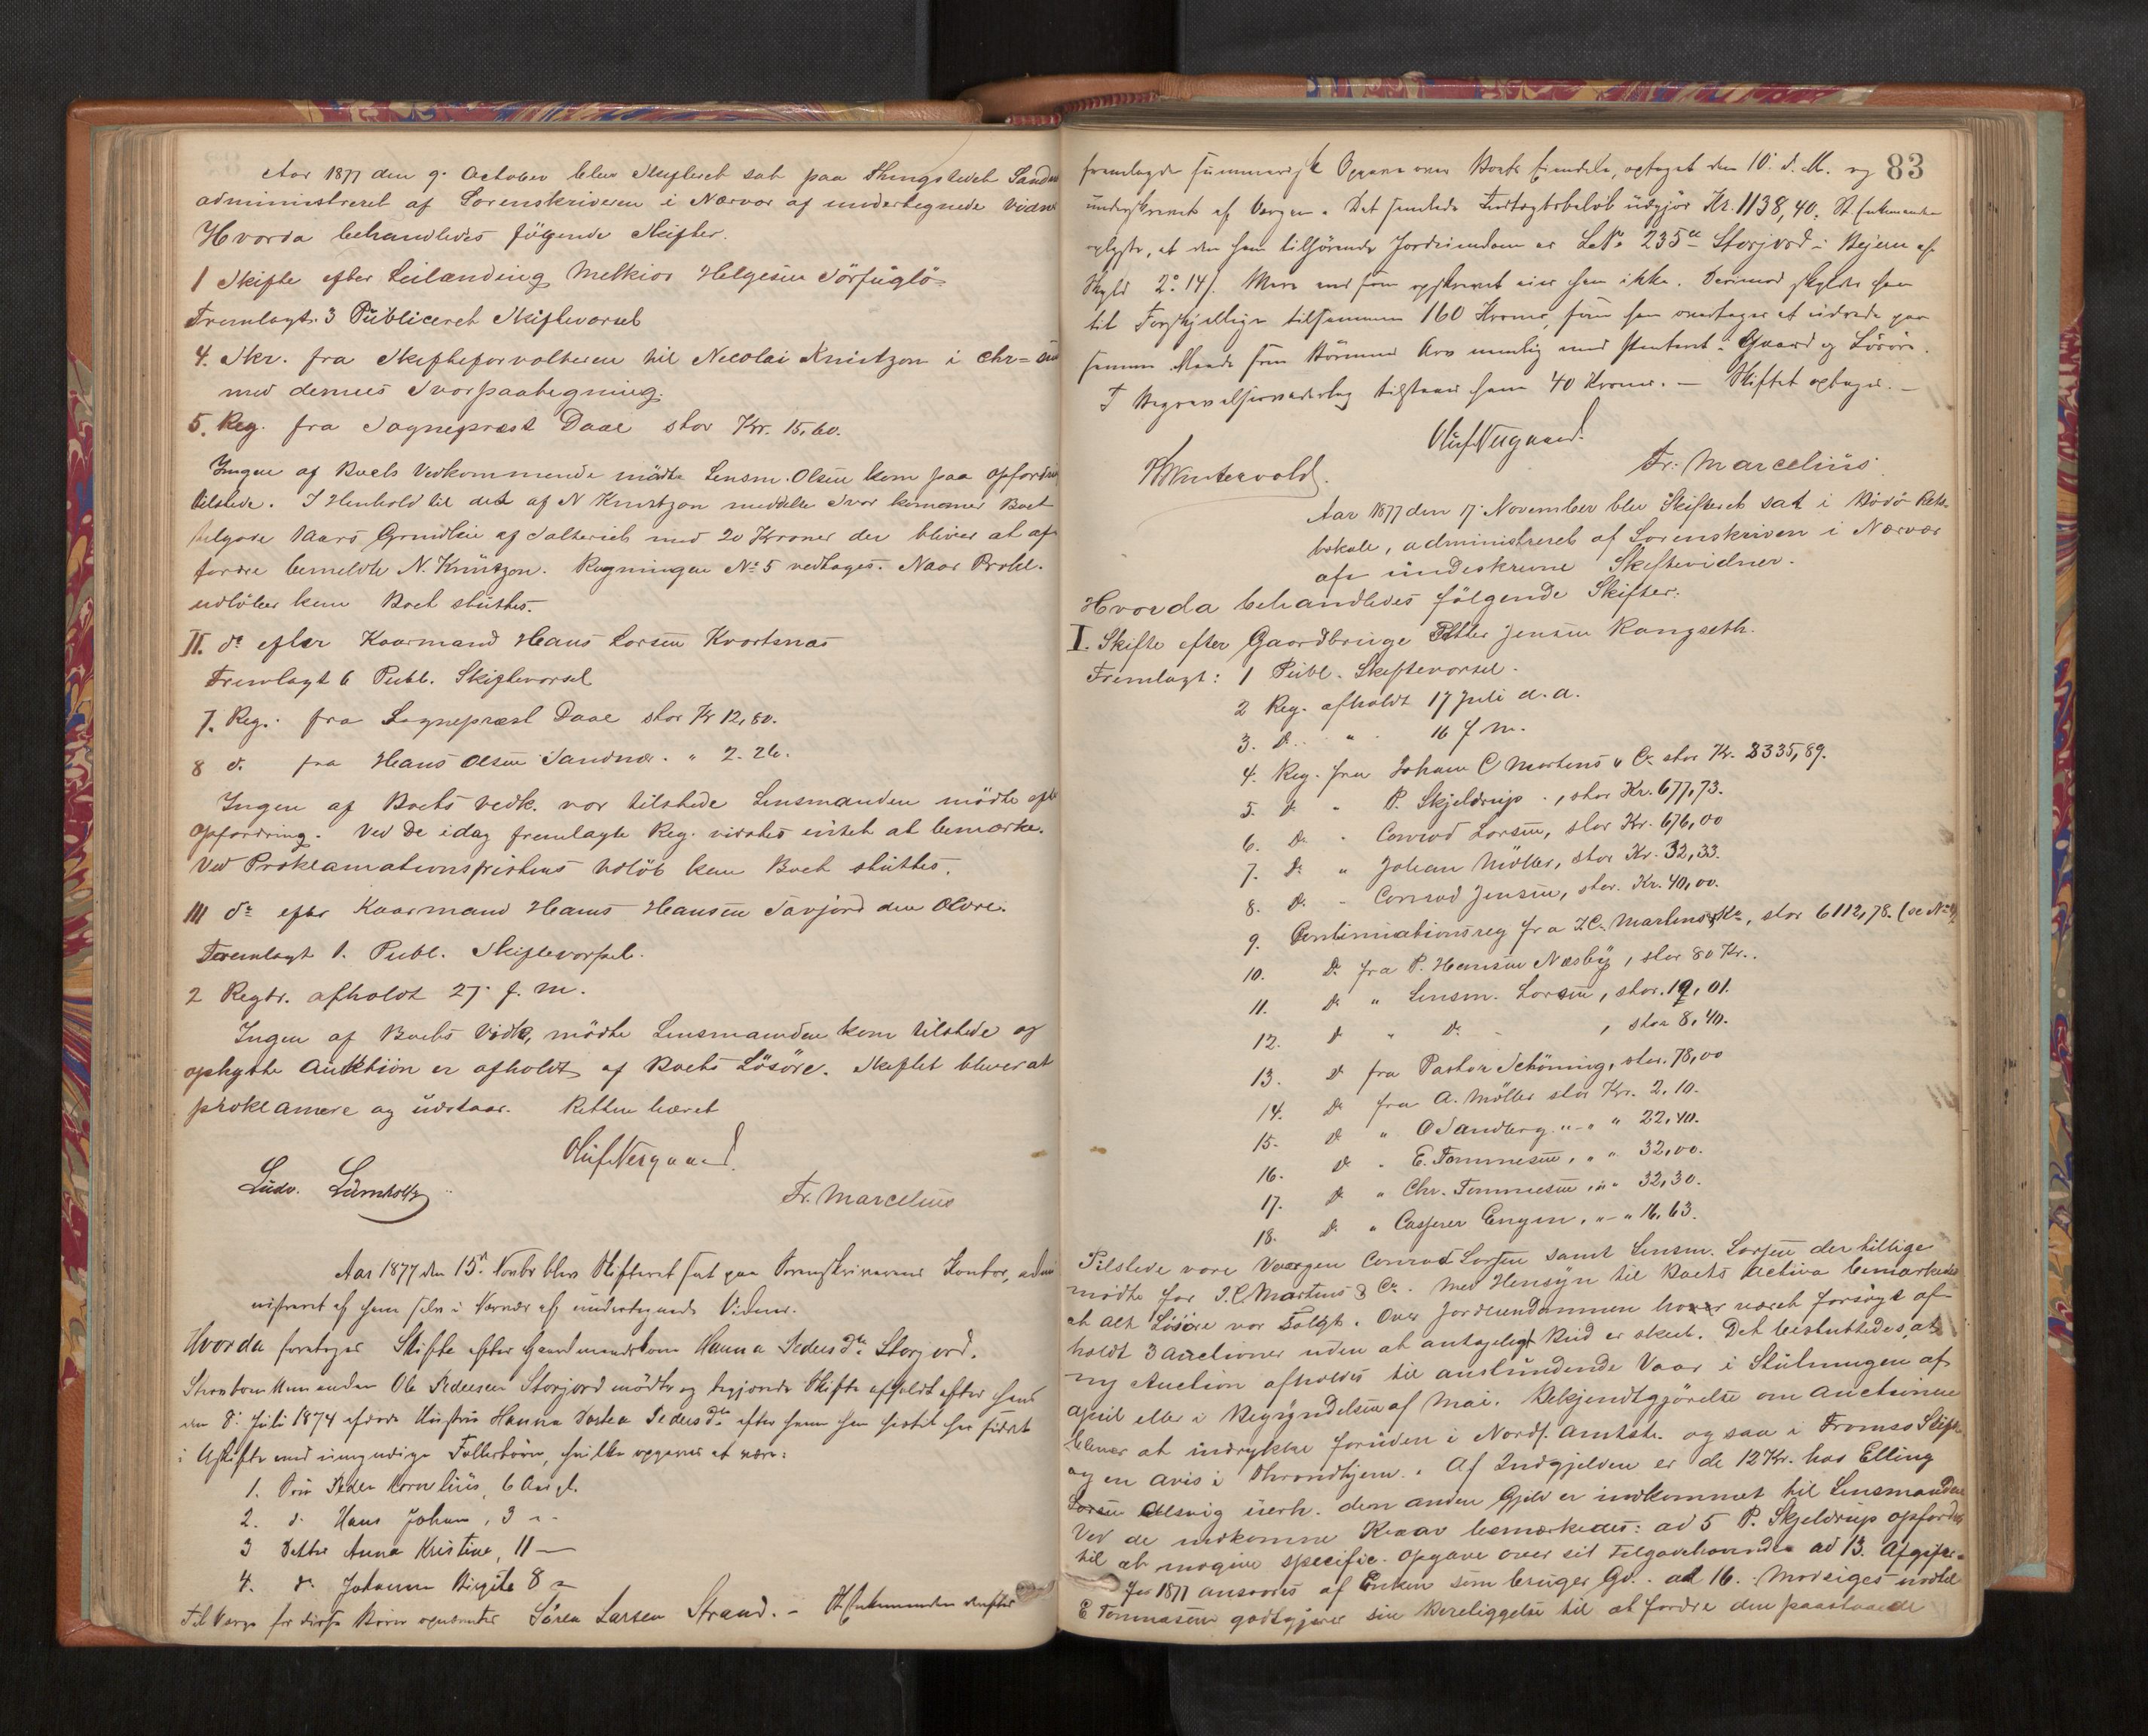 Aar 1877 den 9. October blev Skifteret sat paa Thingstedet Sandn
administreret af Sorenskriveren i Nærvær af undertegnede Vidn
Hvorda behandledes følgende Skifter.
1 Skifte efter Leilænding Melkior Helgesen Sörfuglö
Fremlagt. 3 Publiceret Skiftevarsel
4. Skr. fra Skifteforvalteren til Nicolai Knutzon i Chr=su
med dennes Svarpaategning.
5. Reg. fra Sognepræst Daae stor Kr. 15,60.
Ingen af Boets Vedkommende mödte Lensm. Olsen kom paa Opfordr
tilstede. I Henhold til det af N Knutzon meddelte Svar kommer Boet
1 Aars Grundleie af med 20 Kroner der bliver at af
fordre bemeldte N. Knutzon. Regningen No 5 vedtages. Naar Prokl.
udlöber kan Boet sluttes.
II. do efter Kaarmand Hans Larsen Kvartsnæs
Fremlagt 6 Publ. Skiftevarsel
7. Reg. fra Sognepræst Daae stor Kr 12,80.
8 d. fra Hans Olsen Sandnæs. " 2.26.
Ingen af Boets Vedk. var tilstede Lensmanden mödte efter
Opfordring. Ved de idag fremlagte Reg. vidstes intet at bemærke.
Ved Proklamationsfristens Udlöb kan Boet sluttes.
III do efter Kaarmand Hans Hansen Savjord den Ældre.
Fremlagt 1. Publ. Skiftevarsel.
2 Regtr. afholdt 27. f. M.
Ingen af Boets Vedk, mödte Lensmanden kom tilstede og
oplyste Auktion er afholdt af Boets Lösöre. Skiftet bliver at
proklamere og udstaar. Retten hævet
Oluf Neergaard.
Ludv. Lumholtz Fr. Marcelius
Aar 1877 den 15. Novbr blev Skifteret sat paa Sorenskriverens Kontor, admi
nistreret af ham selv i Nærvær af undertegnede Vidner.
Hvorda foretages Skifte efter Gaardmandskone Hanna Pedersdtr Storjord.
Strandsom Enkemanden Ole Pedersen Storjord mödte og begjærede Skifte afholdt efter hans
den 8. Juli 1874 afdøde Hustru Hanna Pedersdtr efter hvem han hertil har siddet
i Uskifte med umyndige Fellesbörn, hvilke opgaves at være:
1. Sön Peder Kornelius, 6 Aar gl.
2. d. Hans Johan, 3 " -
3 Datter Anna Kristine, 11 —
4. d. Johanna Birgite 8 "
Til Verge for disse Börn opnævntes Sören Larsen Strand. - Enkemanden derefter
83
fremlagde summarisk Opgave over Boets Eiendele, optaget den 10. d. M. og
underskrevet af Vergen. Det samlede Indtægtsbelöb udgjör Kr. 1138,40. Enkemanden
oplyste, at den ham tilhörende Jordeiendom er LNo 235 Storjord i Beiern af
Skyld 2. 14/. Mere end som opskrevet eier han ikke. Derimod skylder han
til Forskjellige tilsammen 160 Kroner, som han overtager at udrede paa
samme Maade som Börnenes Arv nemlig med Pant i Gaard og Lösöre.
I Begravelsesvederlag tilstaaes ham 40 Kroner. — Skiftet optages. —
Oluf Neergaard.
Fr. Marcelius
Aar 1877 den 17. November blev Skifteret sat i Bodö Rets-
lokale, administreret af Sorenskriveren i Nærvær
af underskrevne Skiftevidner.
Hvorda behandledes følgende Skifter:
I. Skifte efter Gaardbruger Petter Jensen Kongseth.
Fremlagt: 1 Publ. Skiftevarsel.
2 Reg. afholdt 17 Juli d. A.
3. D. " 16 f M.
4. Reg. fra Johan C Martens & Co. stor Kr. 2335,89.
5. D. " P. Skjeldrup, stor Kr. 677,73.
6. D. " Conrad Larsen, stor Kr. 676,00
7. D. " Johan Möller, stor Kr. 32,33.
8. D. " Conrad Jensen, stor. Kr. 40,00.
9. Continuationsreg fra J.C. Martens & Ko, stor 6112,78. (se No 4)
10. D. fra P. Hansen Næsby, stor 80 Kr..
11. D. " Lensm. Larsen, stor. 19,01.
12. D " D. - , stor 8,40.
13. D fra Pastor Schöning, stor. 78,00
14. D. fra A. Möller stor Kr. 2.10.
15. D " O Sandberg " - " 22,40.
16. D " E. Tommesen, " " 32,00.
17. D " Chr. Tommesen, " " 32,30.
18. D. " Casperer Engen, " - " 16,63.
Tilstede vare Værgen Conrad Larsen samt Lensm. Larsen der tillige
mödte for J.C. Martens & Co. Med Hensyn til Boets Activa bemærkedes
at alt Lösöre var solgt. Over Jordeiendommen har været forsögt af
holdt 3 Auctioner uden at antageligt Bud er skeet. Det besluttedes, at
ny Auction afholdes til anstundende Vaar i Slutningen af
April eller i Begyndelsen af Mai. Bekjendtgjörelse om Auctionen
bliver at indrykke foruden i Nordl. Amtst. og saa i Tromsö Stift
og en Avis i Throndhjem. Af Indgjelden er de 12 Kr. hos Elling
Larsen Alsvig uerh. den anden Gjeld er indkommet til Lensmanden
Ved de indkomne Krav bemærkedes: ad 5 P. Skjeldrup opfordres
til at inngive specific. Opgave over sit Tilgodehavende ad 13. Afgifter
for 1877 ansvares af Enken som bruger Gd. ad 16. Modsiges indtil
E Tommesen godtgjører sin Bereliggelse til at fordre den paastaaede